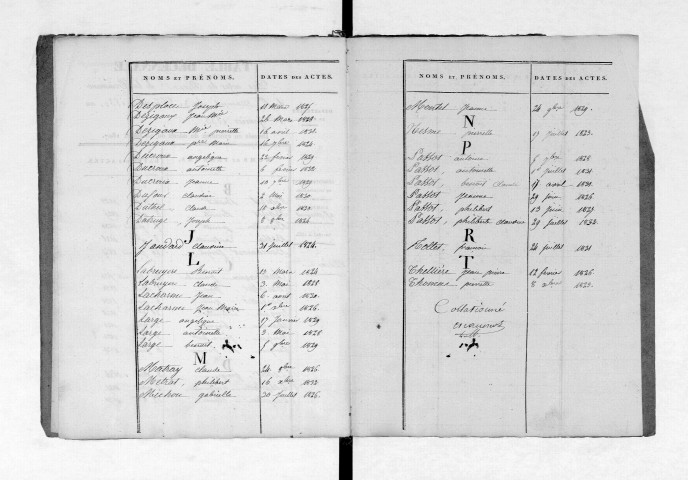 NOMS ET PRÉNOMS. DATES DES ACTES.
Desplace Joseph 11 Mars 1826.
Dézigaux Jean Mie 26 Mars 1828.
Dézigaux Mie pierrette 16 avril 1821.
Dézigaux pre Marie 1824
Ducroux angelique 22 fevrier 1829
Ducroux antoinette 6 fevrier 1822
Ducroux jeanne 1829
Dufour claudine 2 Mai 1820.
Duthel claude 10 1820.
joseph 8 1824
J
Jandard claudine 21 juillet 1824.
L
Labruyere Benoit 19 Mars 1824
Labruyere claude 3 Mai 1828
Lacharme Jean 6 avril 1820.
Lacharme Jean Marie 1er xbre 1826.
Large angelique 17 Janvier 1829
Large antoinette 3 Mai 1828
Large benoit 5 gbre 1829
M
Matray claude 24 gbre 1826
Metrat philibert 16 xbre 1822
Michon gabrielle 20 juillet 1826.
NOMS ET PRÉNOMS. DATES DES ACTES.
Montel jeanne 24 gbre 1829.
N
Nesme pierrette 19 juillet 1823.
P
Passot antoine 5 gbre 1826
Passot, antoinette 1er juillet 1821
Passot benoit claude 17 avril 1820.
Passot jeanne 29 1826
Passot, philibert 13 1829
Passot, philiberte claudine 29 juillet 1822.
R
Rollet, francois 24 juillet 1821
T
Thellière jean pierre 12 fevrier 1826
Thomene pierrette 8 xbre 1823.
Collationné